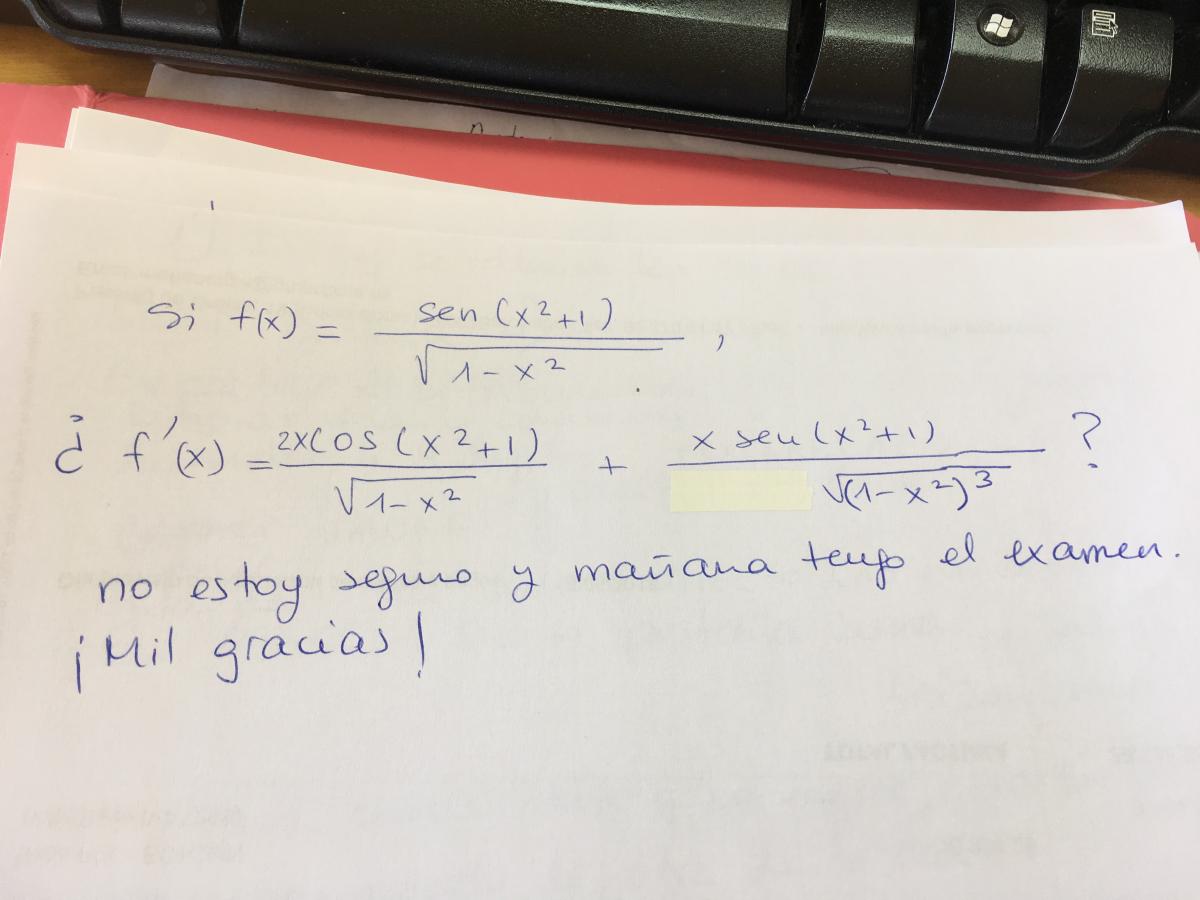 Si f(x) = sen(x²+1) / √(1-x²) ,
¿ f'(x) = 2xcos(x²+1) / √(1-x²) + x sen(x²+1) / √((1-x²)³) ?
no estoy seguro y mañana tengo el examen.
¡Mil gracias!